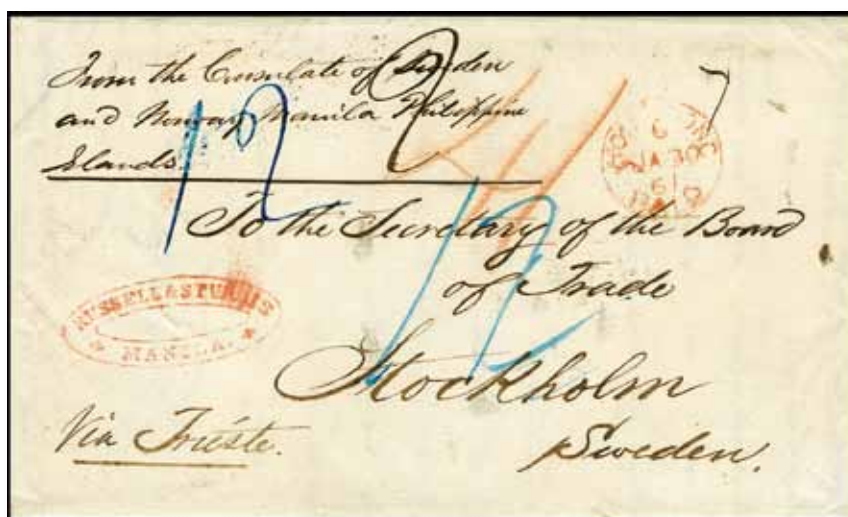 From the Consulate of Sweden
and Norway Manila Philippine
Islands.
12
2
4
12
JA 30
61
PAID
To the Secretary of the Board
of Trade
RUSSELL & STURGIS
MANILA.
Stockholm
Via Trieste.
Sweden.